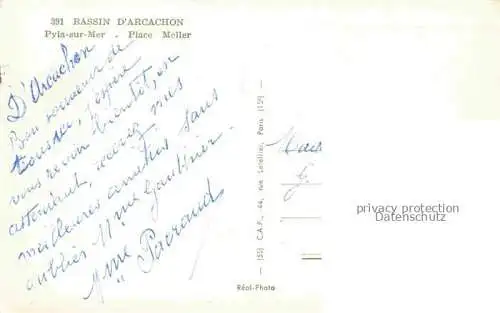 391 BASSIN D'ARCACHON
Pyla-sur-Mer - Place Meller
D'Arcachon
Bon souvenir de
vous revoir bientôt, en
attendant, recevez nos
meilleures amitiés sans
oublier Mme Gauthier.
Mme
(55) C.A.P., 44, rue Letellier, Paris (15e)
Réal-Photo
privacy protection
Datenschutz